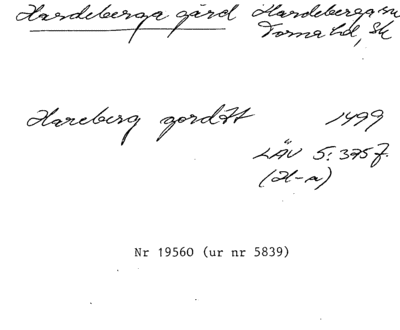 Hardeberga gård Hardeberga sn
Torna hd, Sk
Hareberg gordh 1499
LÄU 5:375 f.
(H-a)
Nr 19560 (ur nr 5839)